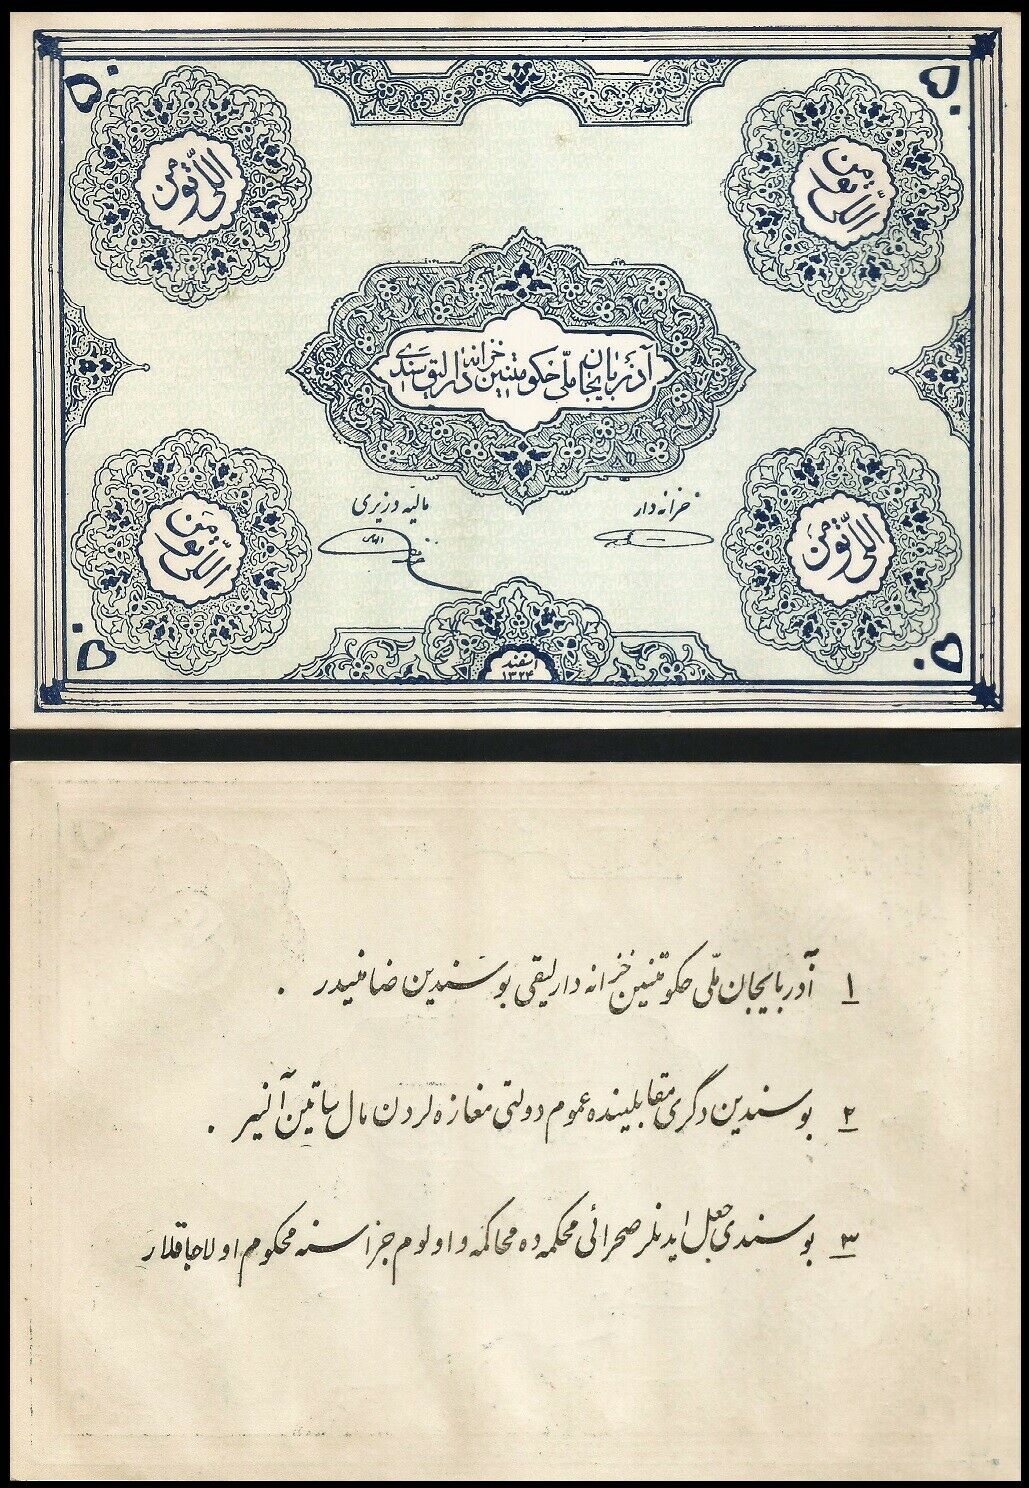 ۵۰
۵۰
اللی تومن
اللی تومن
آذربایجان ملّی حکومتنین خزانه دارلیق سندی
مالیه وزیری
خزانه دار
اللی تومن
اللی تومن
اسفند
۱۳۲۴
۵۰
۵۰
۱ آذربایجان ملّی حکومتنین خزانه دارلیقی بو سندین ضامنیدر .
۲ بو سندین دگری مقابلینده عموم دولتی مغازه لردن مال ساتین آلنیر .
۳ بو سندی جعل ایدنلر صحرائی محکمه ده محاکمه و اولوم جزاسنه محکوم اولاجاقلار